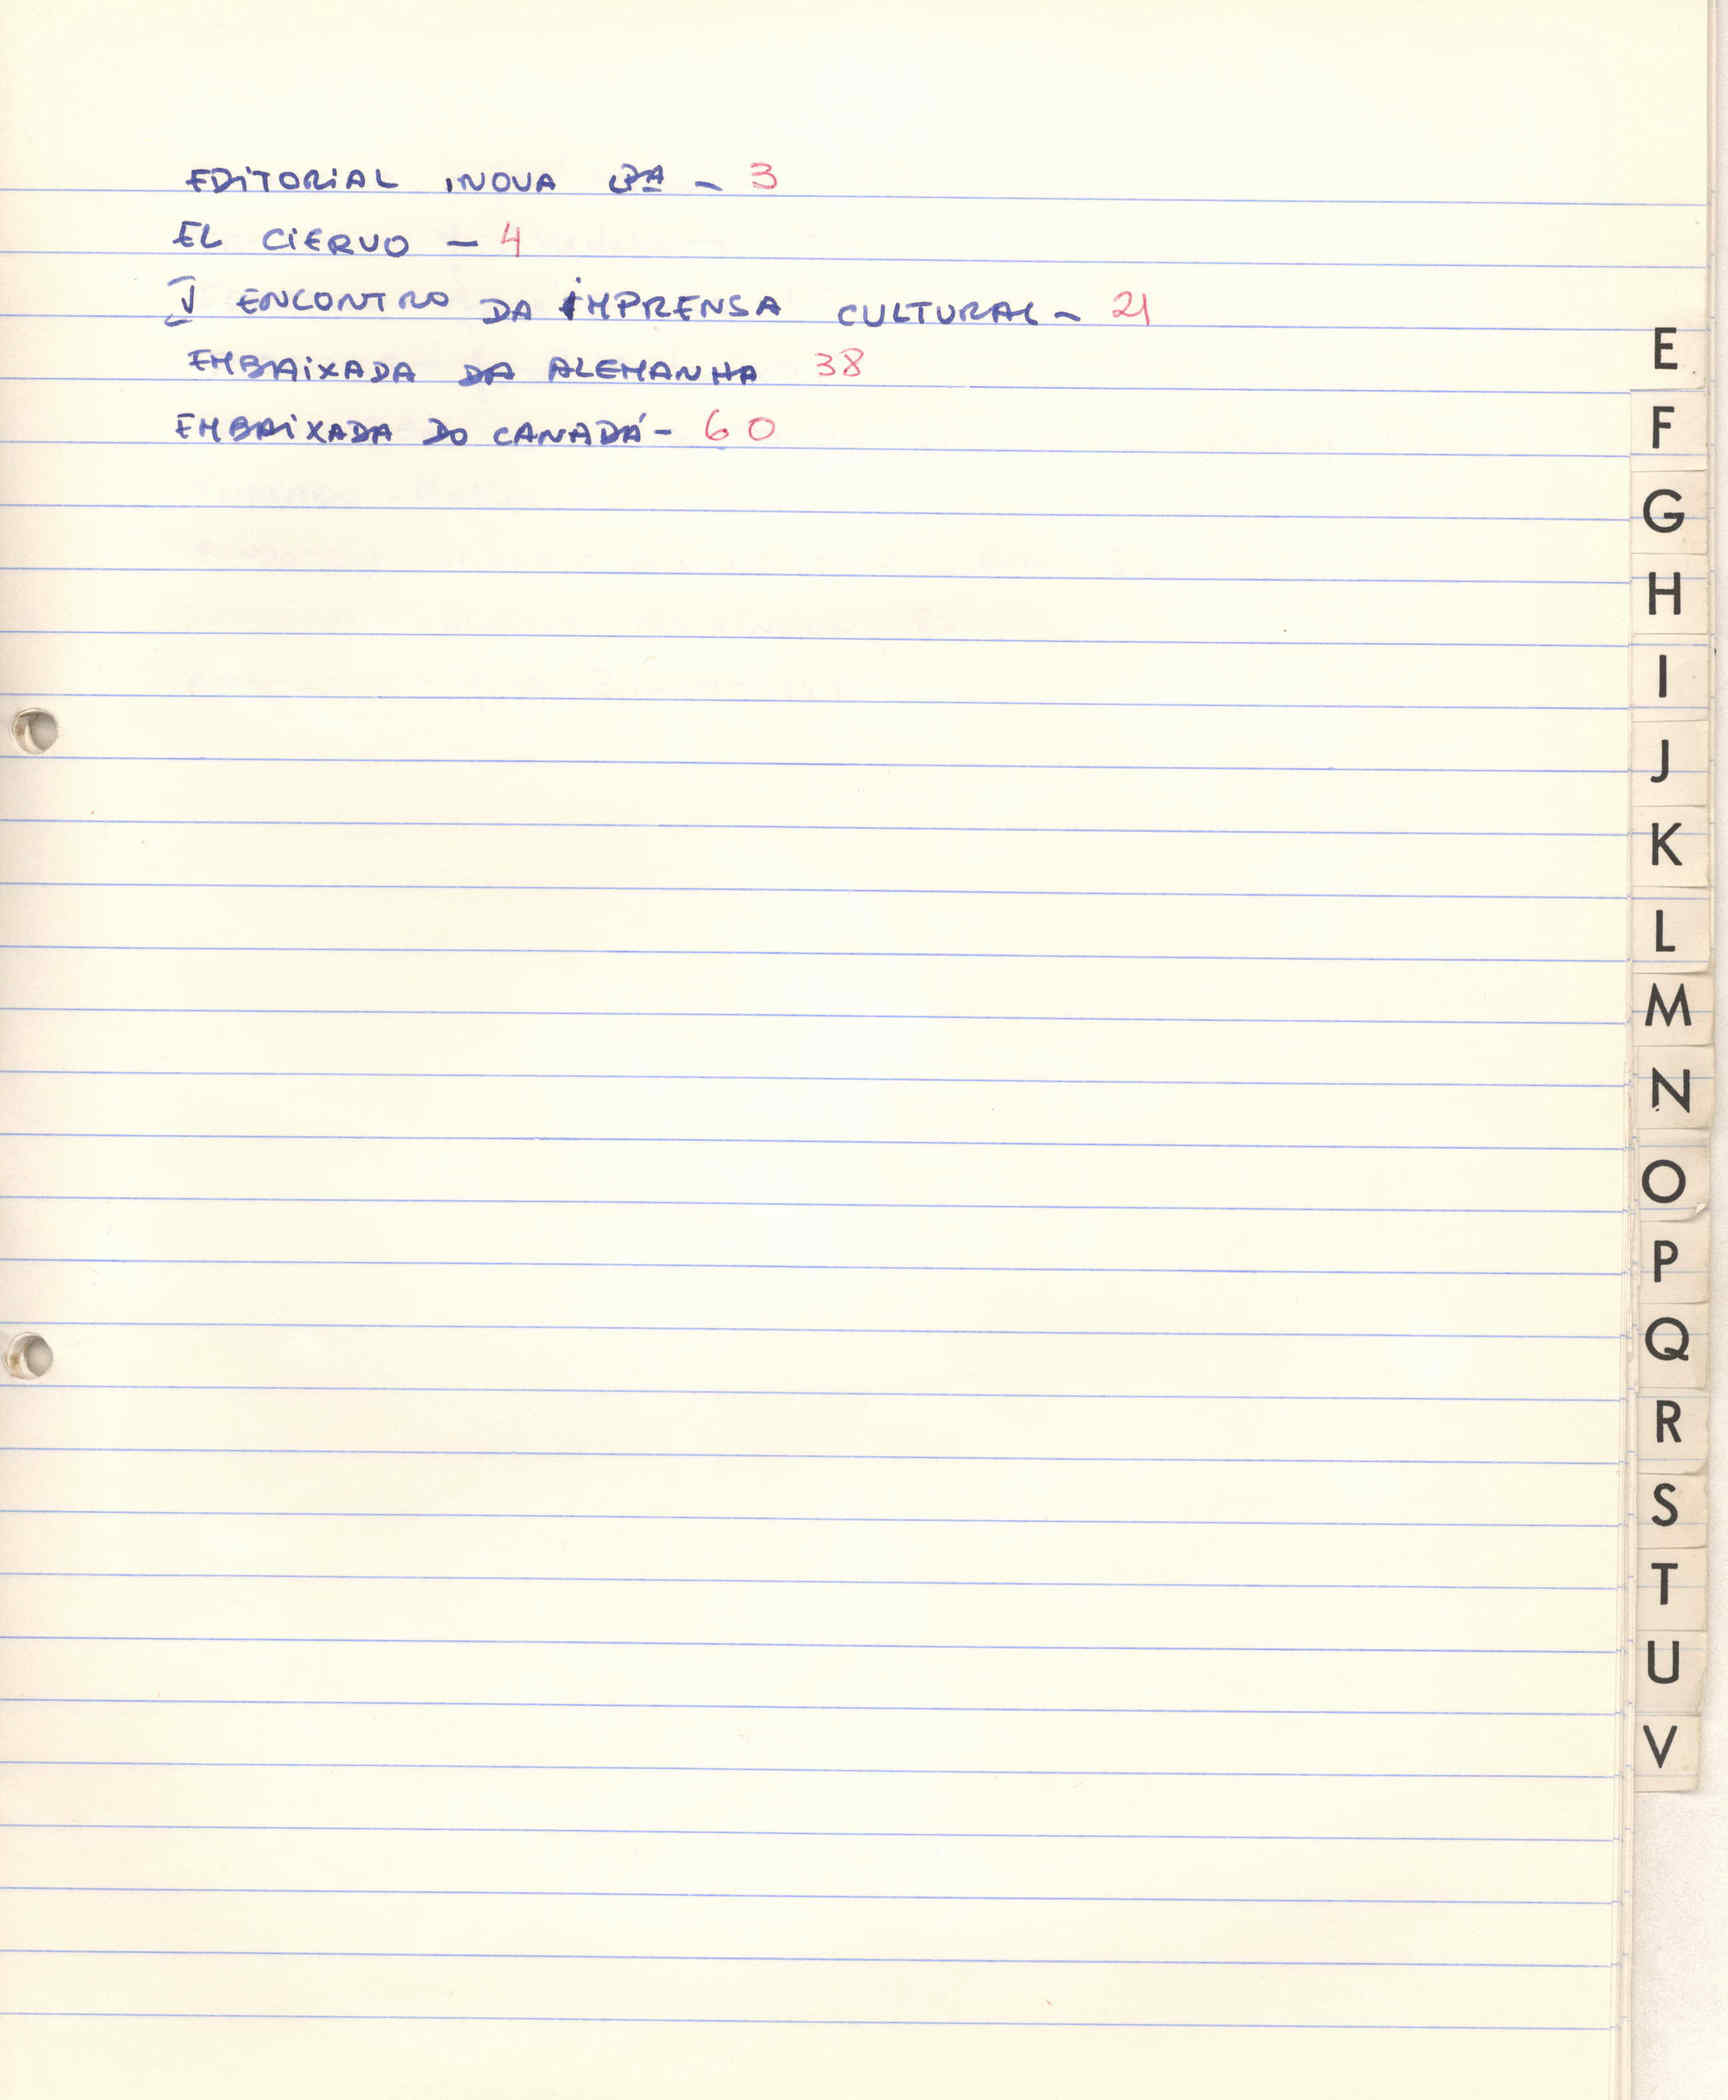 EDITORIAL INOVA LDA - 3
EL CIERVO - 4
I ENCONTRO DA IMPRENSA CULTURAL - 21
EMBAIXADA DA ALEMANHA 38
EMBAIXADA DO CANADÁ - 60
E
F
G
H
I
J
K
L
M
N
O
P
Q
R
S
T
U
V